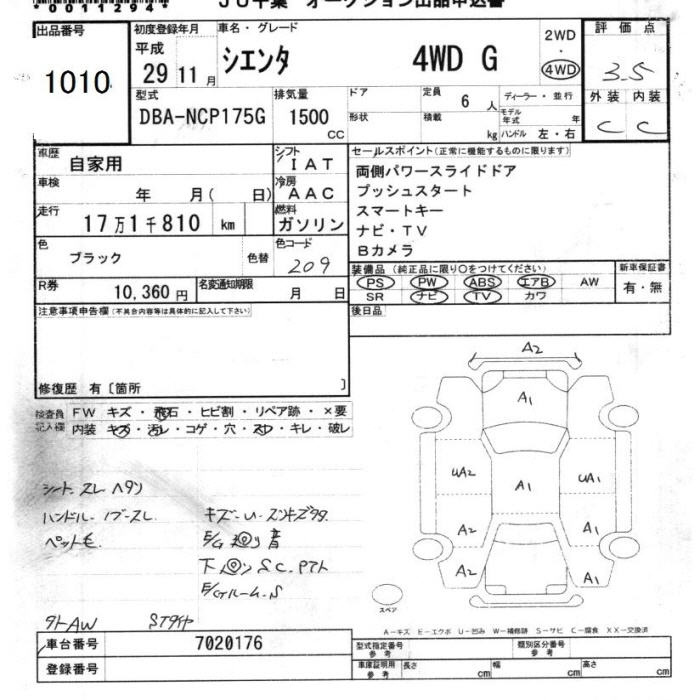 *00112944*
JU千葉 オークション出品申込書
出品番号
1010
初度登録年月
平成
29 11 月
車名・グレード
シエンタ 4WD G
2WD
・
4WD
評価点
3.5
外装 内装
C C
型式
DBA-NCP175G
排気量
1500
CC
ドア
形状
定員 6 人
積載 kg
ディーラー・並行
モデル年式 年
ハンドル 左・右
車歴
自家用
シフト
IAT
車検
年 月( 日)
冷房
AAC
走行
17万1千810 km
燃料
ガソリン
色
ブラック
色替
色コード
209
R券
10,360 円
名変通知期限
月 日
セールスポイント(正常に機能するものに限ります)
両側パワースライドドア
プッシュスタート
スマートキー
ナビ・TV
Bカメラ
装備品(純正品に限り○をつけてください)
PS PW ABS エアB AW
SR ナビ TV カワ
新車保証書
有・無
後日品
注意事項申告欄(不具合内容等は具体的に記入して下さい)
修復歴 有〔箇所 〕
検査員
記入欄
FW キズ・飛石・ヒビ割・リペア跡・×要
内装 キズ・汚レ・コゲ・穴・スレ・キレ・破レ
シート スレ ヘタリ
ハンドル
ペット毛
キズ-U-
E/G
S C.
E/Gルーム.S
AW
A2
A1
UA2
A1
UA1
A2
A1
A2
A1
スペア
A-キズ E-エクボ U-凹み W-補修跡 S-サビ C-腐食 XX-交換済
車台番号
7020176
登録番号
型式指定番号
参考
類別区分番号
参考
車庫証明用
参考
長さ cm
幅 cm
高さ cm